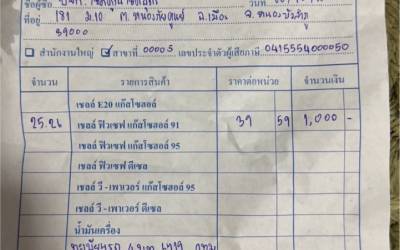 ชื่อผู้ซื้อ
วันที่
ที่อยู่ 181 ม.10 ต.หนองภัยศูนย์ อ.เมือง จ.หนองบัวลำภู
39000
สำนักงานใหญ่ ✓ สาขาที่ 00003 เลขประจำตัวผู้เสียภาษี 0415554000050
จำนวน รายการสินค้า ราคาต่อหน่วย จำนวนเงิน
เชลล์ E20 แก๊สโซฮอล์
25.26 เชลล์ ฟิวเซฟ แก๊สโซฮอล์ 91 39 59 1,000 -
เชลล์ ฟิวเซฟ แก๊สโซฮอล์ 95
เชลล์ ฟิวเซฟ ดีเซล
เชลล์ วี - เพาเวอร์ แก๊สโซฮอล์ 95
เชลล์ วี - เพาเวอร์ ดีเซล
น้ำมันเครื่อง
ทะเบียนรถ กทม